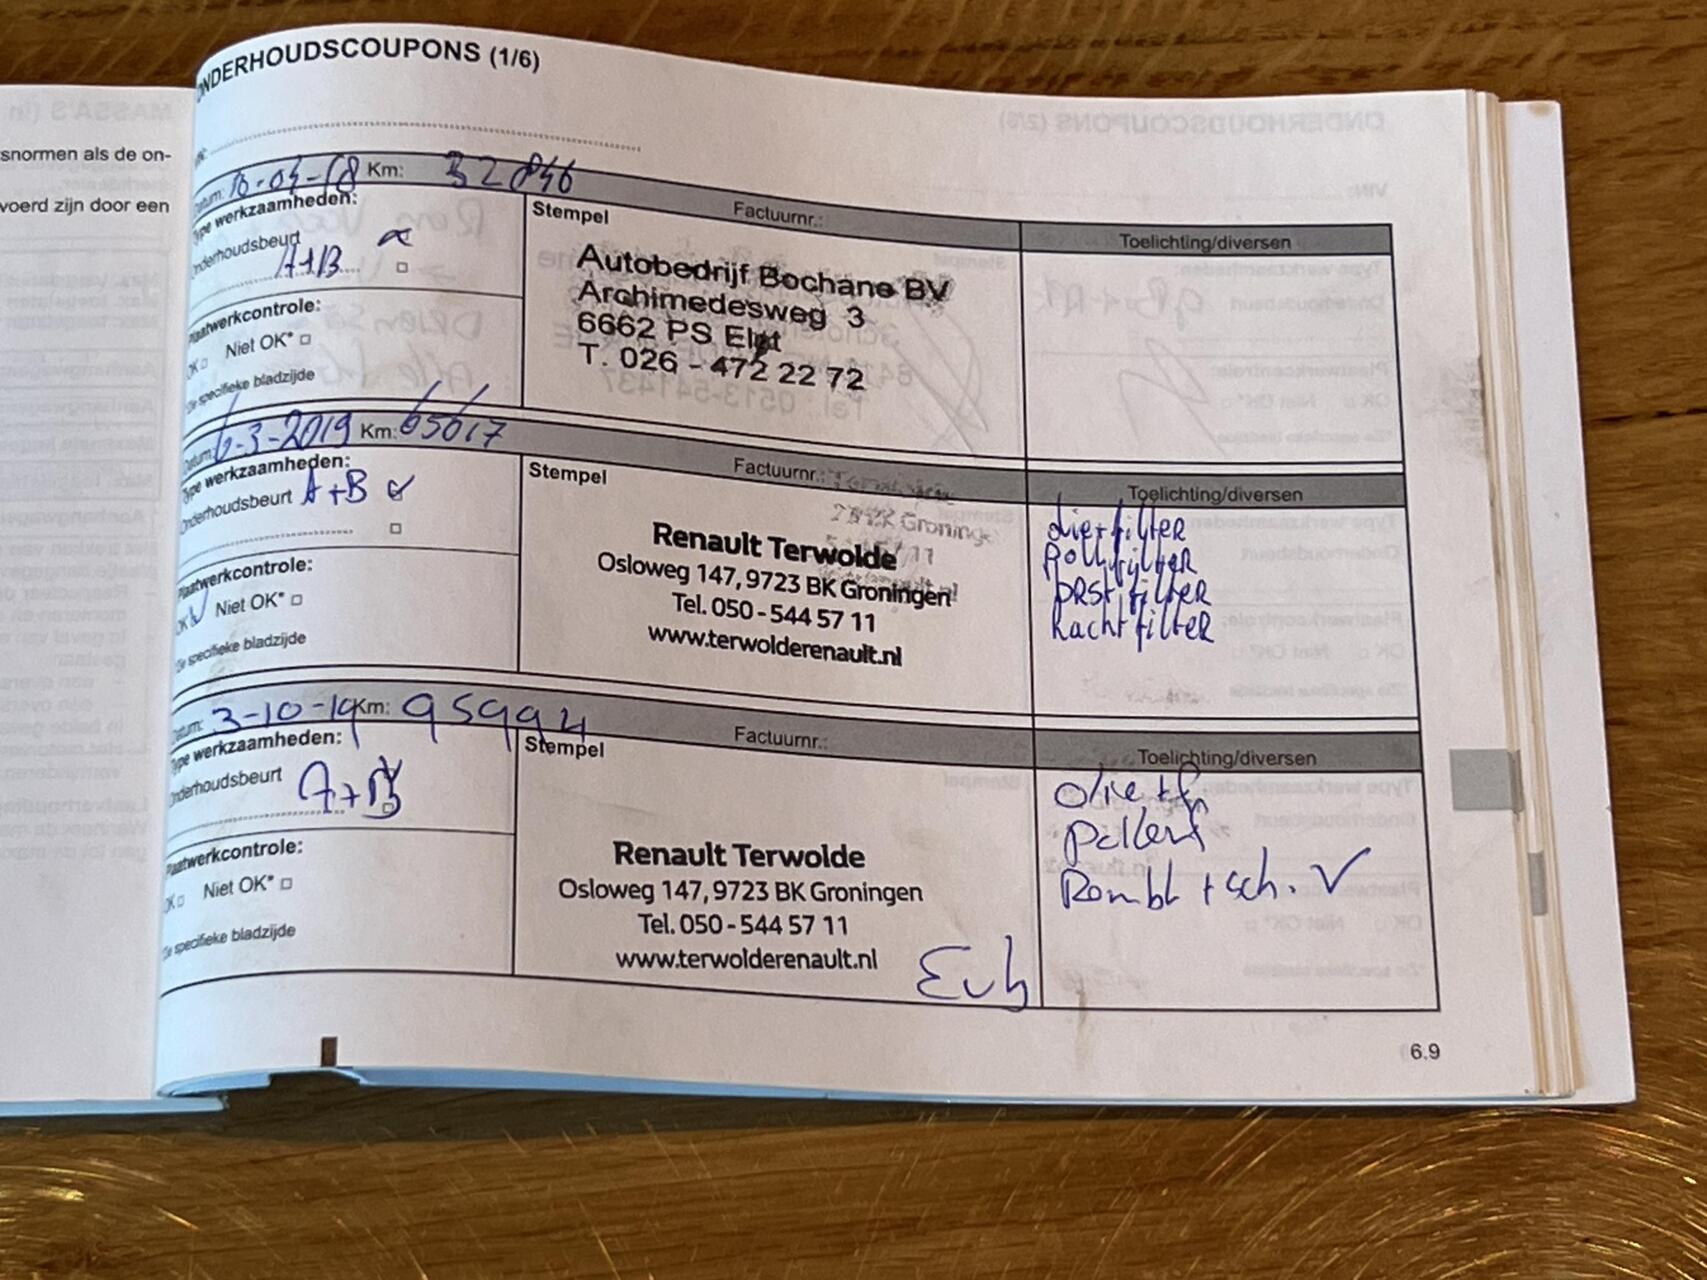 snormen als de on-
voerd zijn door een
ONDERHOUDSCOUPONS (1/6)
Datum: 16-04-18 Km: 32846
Type werkzaamheden:
Onderhoudsbeurt
A+B
Plaatwerkcontrole:
OK Niet OK*
*Zie specifieke bladzijde
Stempel
Factuurnr.:
Autobedrijf Bochane BV
Archimedesweg 3
6662 PS Elst
T. 026 - 472 22 72
Toelichting/diversen
Datum: 6-3-2019 Km: 65617
Type werkzaamheden:
Onderhoudsbeurt A+B
Plaatwerkcontrole:
OK Niet OK*
*Zie specifieke bladzijde
Stempel
Factuurnr.:
Renault Terwolde
Osloweg 147, 9723 BK Groningen
Tel. 050 - 544 57 11
www.terwolderenault.nl
Toelichting/diversen
filter
filter
filter
filter
Datum: 3-10-19 Km: 95994
Type werkzaamheden:
Onderhoudsbeurt A+B
Plaatwerkcontrole:
OK Niet OK*
*Zie specifieke bladzijde
Stempel
Factuurnr.:
Renault Terwolde
Osloweg 147, 9723 BK Groningen
Tel. 050 - 544 57 11
www.terwolderenault.nl
Toelichting/diversen
Olie + f
Pollenf
Rembl + sch.
6.9